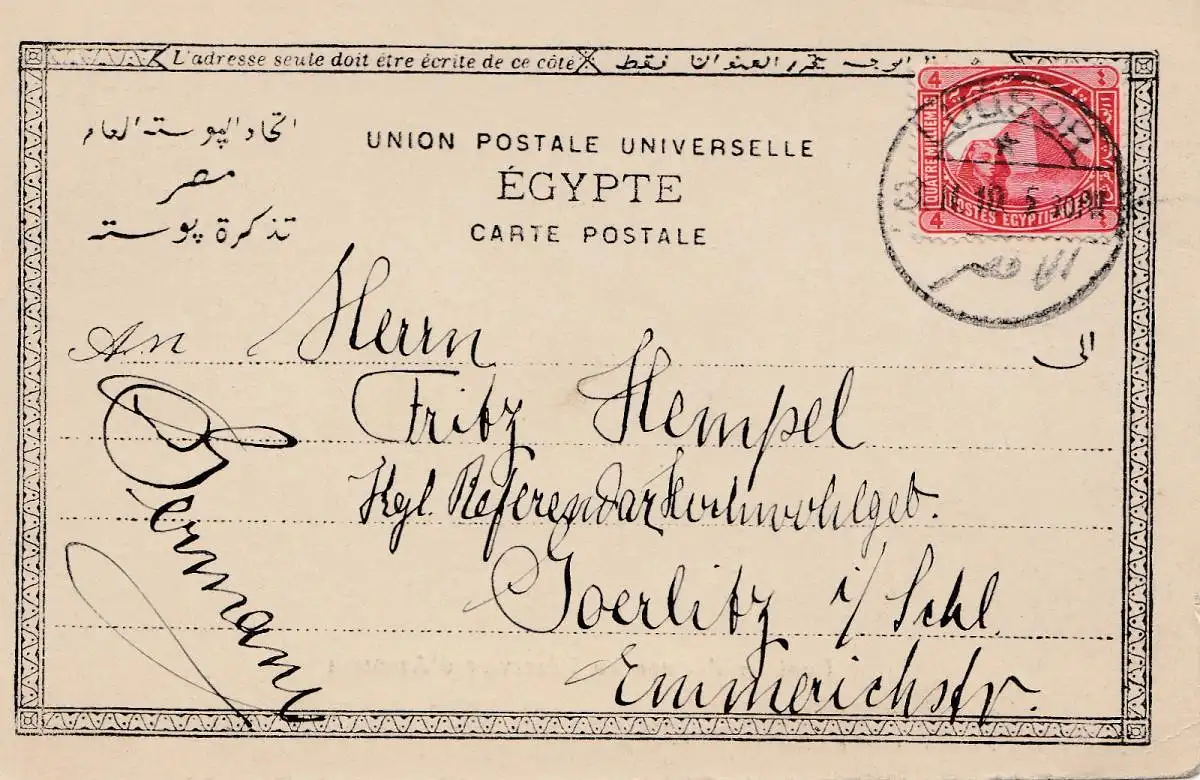 L'adresse seule doit être écrite de ce côté
العنوان فقط
اتحاد البوسته العام
مصر
تذكرة بوسته
UNION POSTALE UNIVERSELLE
ÉGYPTE
CARTE POSTALE
4
QUATRE MILLIEMES
POSTES EGYPTIENNES
4
LOUQSOR
II 10 5 30PM
الاقصر
الى
An Herrn
Fritz Hempel
Kgl. Referendar Hochwohlgeb.
Goerlitz i/ Schl.
Emmerichstr.
Germany